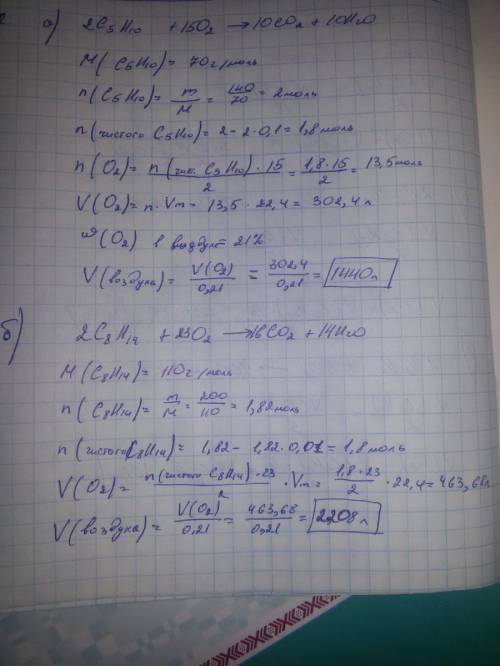 а) 2C₅H₁₀ + 15O₂ → 10CO₂ + 10H₂O
M(C₅H₁₀) = 70 г/моль
n(C₅H₁₀) = m/M = 140/70 = 2 моль
n(чистого C₅H₁₀) = 2 - 2·0,1 = 1,8 моль
n(O₂) = n(чист. C₅H₁₀)·15/2 = 1,8·15/2 = 13,5 моль
V(O₂) = n·Vm = 13,5·22,4 = 302,4 л
φ(O₂) в воздухе = 21%
V(воздуха) = V(O₂)/0,21 = 302,4/0,21 = 1440 л
б) 2C₈H₁₄ + 23O₂ → 16CO₂ + 14H₂O
M(C₈H₁₄) = 110 г/моль
n(C₈H₁₄) = m/M = 200/110 = 1,82 моль
n(чистого C₈H₁₄) = 1,82 - 1,82·0,01 = 1,8 моль
V(O₂) = n(чистого C₈H₁₄)·23/2 · Vm = 1,8·23/2 · 22,4 = 463,68 л
V(воздуха) = V(O₂)/0,21 = 463,68/0,21 = 2208 л